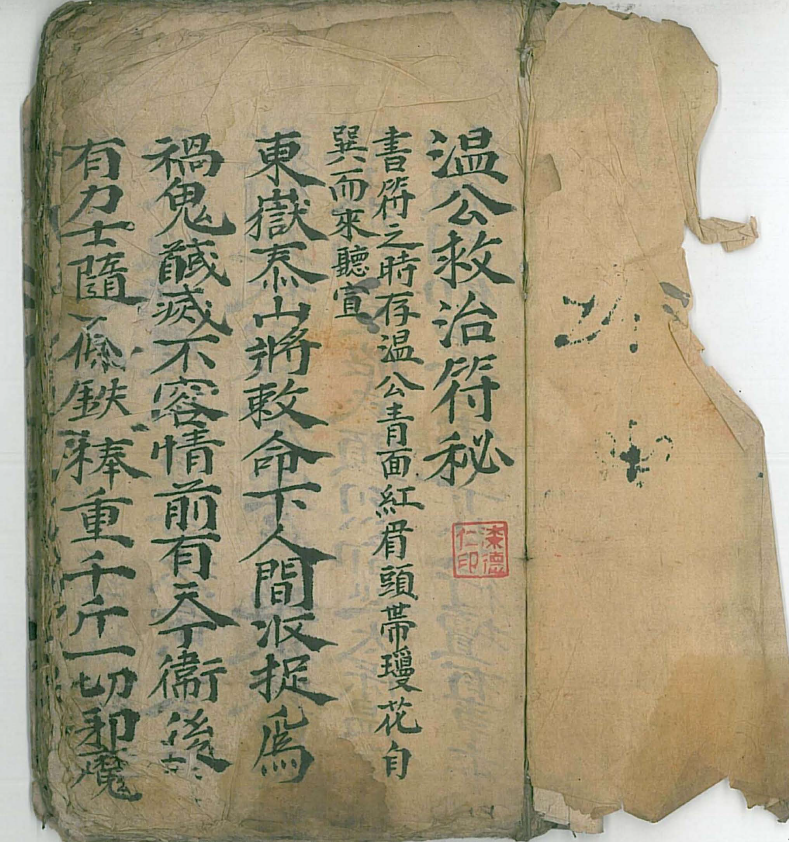 温公救治符秘
書符之時存温公青面紅眉頭帶瓊花自
巽而來聽宣
東嶽泰山將敕命下人間収捉為
禍鬼馘滅不容情前有天丁衛後
有力士隨一條鉄棒重千斤一切邪魔
德
仁印